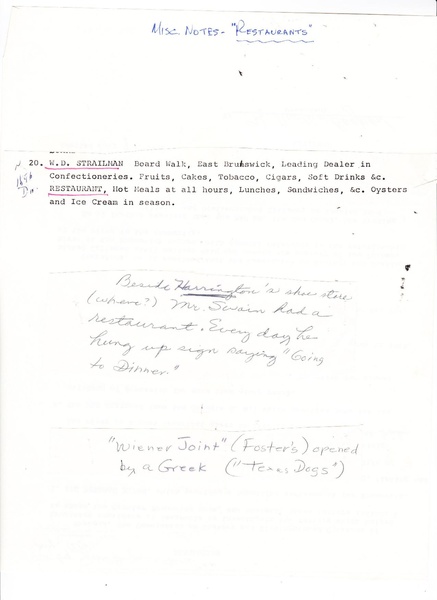 Misc. Notes - "Restaurants"
20. W.D. STRAILMAN Board Walk, East Brunswick, Leading Dealer in
1896 Confectioneries. Fruits, Cakes, Tobacco, Cigars, Soft Drinks &c.
RESTAURANT, Hot Meals at all hours, Lunches, Sandwiches, &c. Oysters
and Ice Cream in season.
Beside Harrington's shoe store
(where?) Mr. Swain had a
restaurant. Every day he
hung up sign saying "Going
to Dinner."
"Wiener Joint" (Foster's) opened
by a Greek ("Texas Dogs")